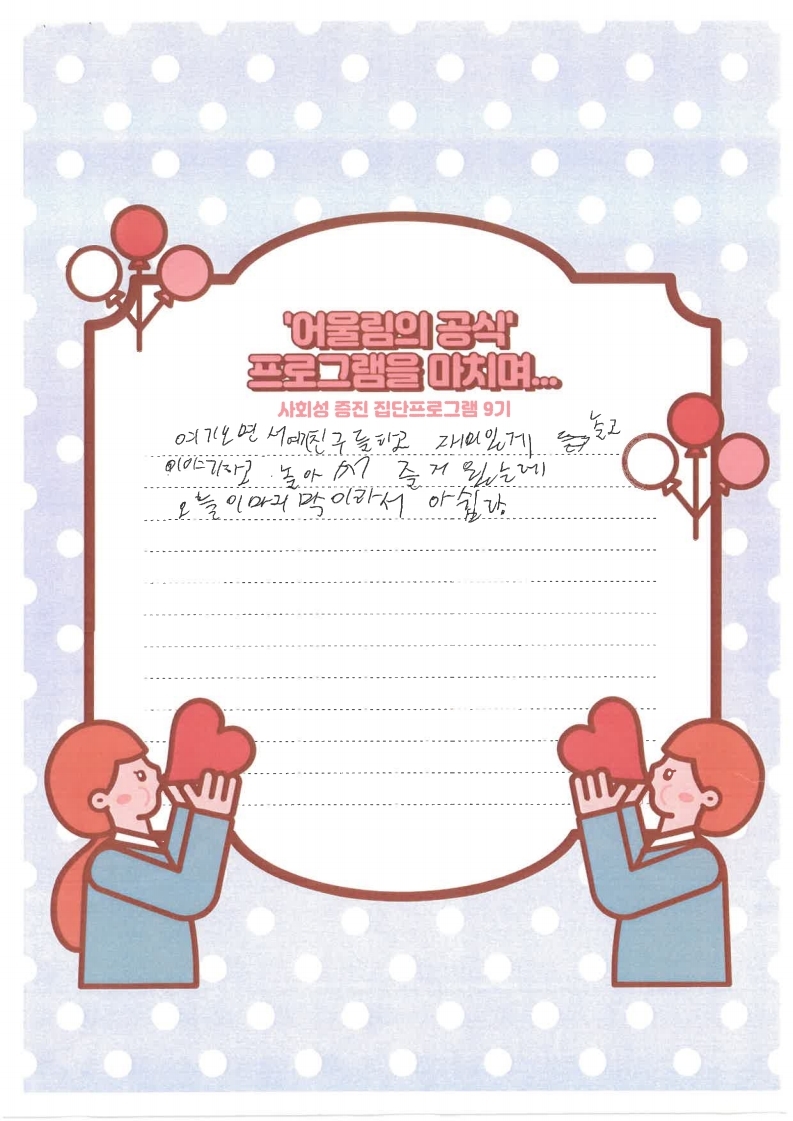 '어울림의 공식'
프로그램을 마치며...
사회성 증진 집단프로그램 9기
여기오면서 친구들하고 재미있게 놀고
이야기하고 놀아서 즐거웠는데
오늘이 마지막이라서 아쉽랑